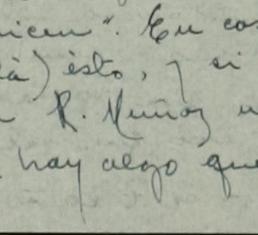 nicen". En cas
là) ésto, y si
R. Muñoz
hay algo que